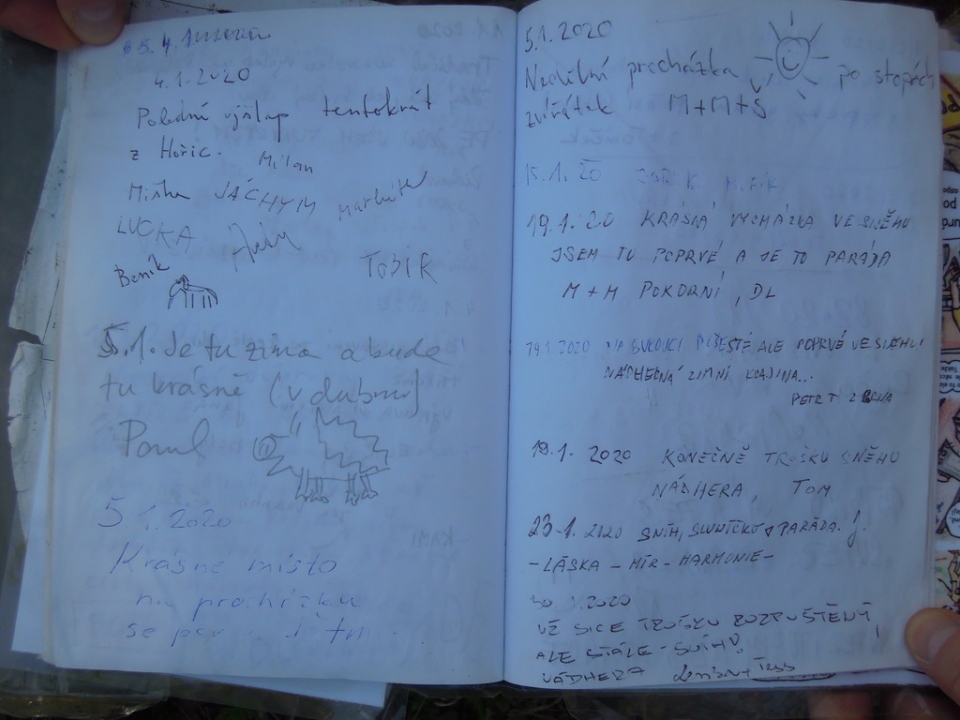 4.1.2020
Polední výšlap tentokrát
z Hořic. Milan
Miška JÁCHYM Markéta
LUCKA
Beník TOBIK
5.1. Je tu zima a bude
tu krásně (v dubnu)
Paul
5.1.2020
Krásné místo
na procházku
se
5.1.2020
Nedělní procházka po stopách
zvířátek M+M+Š
15.1.20
19.1.20 KRÁSNÁ VYCHÁZKA VE SNĚHU
JSEM TU POPRVÉ A JE TO PARÁDA
M+M POKORNÍ, DL
19.1.2020 ALE POPRVÉ VE SNĚHU
NÁDHERNÁ ZIMNÍ KRAJINA...
PETR T Z BRNA
19.1. 2020 KONEČNĚ TROŠKU SNĚHU
NÁDHERA, TOM
23.1.2020 SNÍH, SLUNÍČKO, PARÁDA!
-LÁSKA - MÍR - HARMONIE-
30 1.2020
UŽ SICE TROŠKU ROZPUŠTĚNÝ,
ALE STÁLE - SNÍH!
NÁDHERA